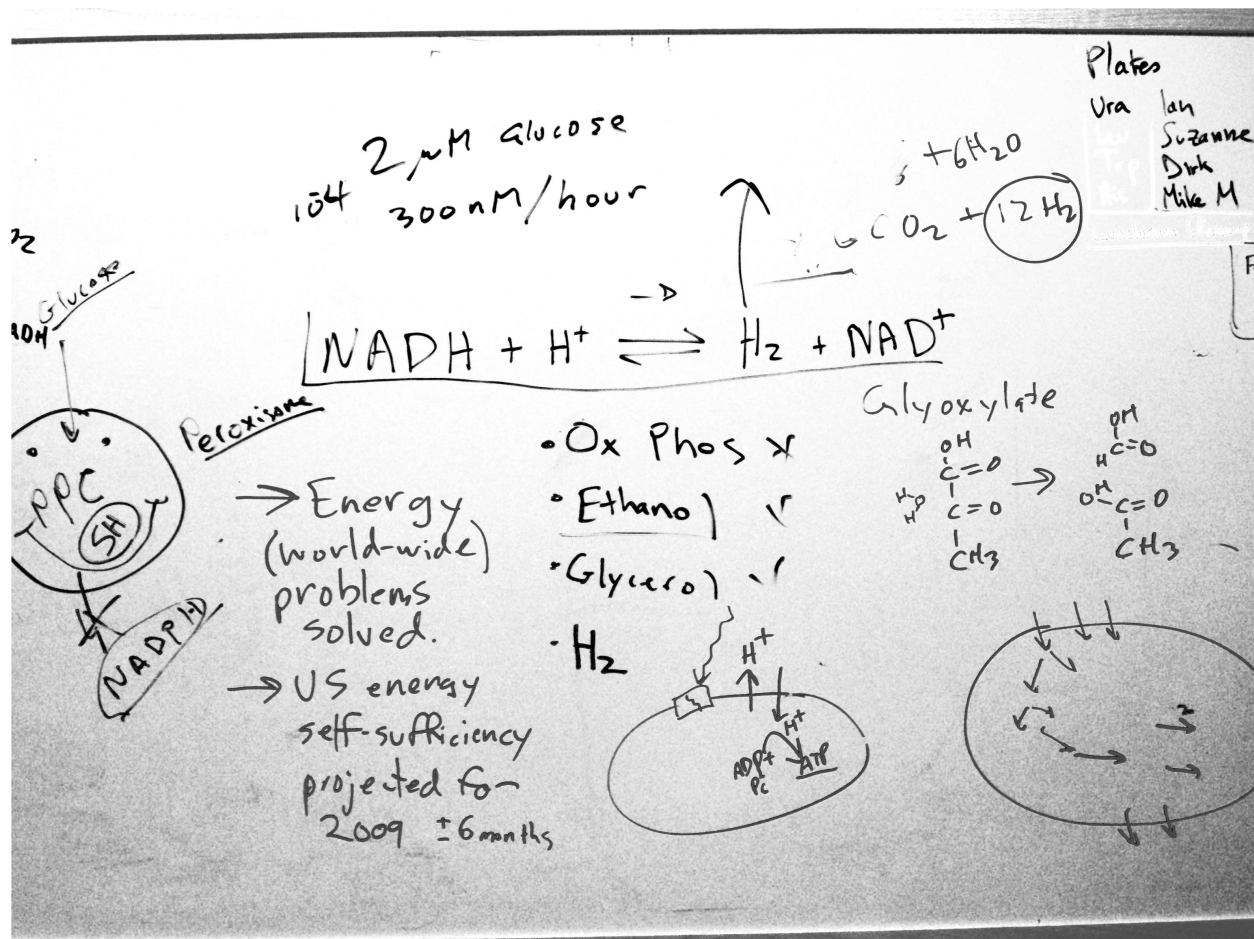 Plates
Ura Ian
Leu Suzanne
Trp Dirk
His Mike M
2 μM Glucose
10⁻⁴ 300 nM/hour
+6H₂O
CO₂ + 12 H₂
Glucose
NADH + H⁺ ⇌ H₂ + NAD⁺
Peroxisome
PPC
SH
NADPH
→ Energy
(world-wide)
problems
solved.
→ US energy
self-sufficiency
projected for
2009 ± 6 months
• Ox Phos x
• Ethanol ✓
• Glycerol ✓
• H₂
H⁺
H⁺
ADP+ ATP
Pi
Glyoxylate
OH
C=O
C=O
CH3
H O H
→
OH
H C=O
OH C=O
CH3
2